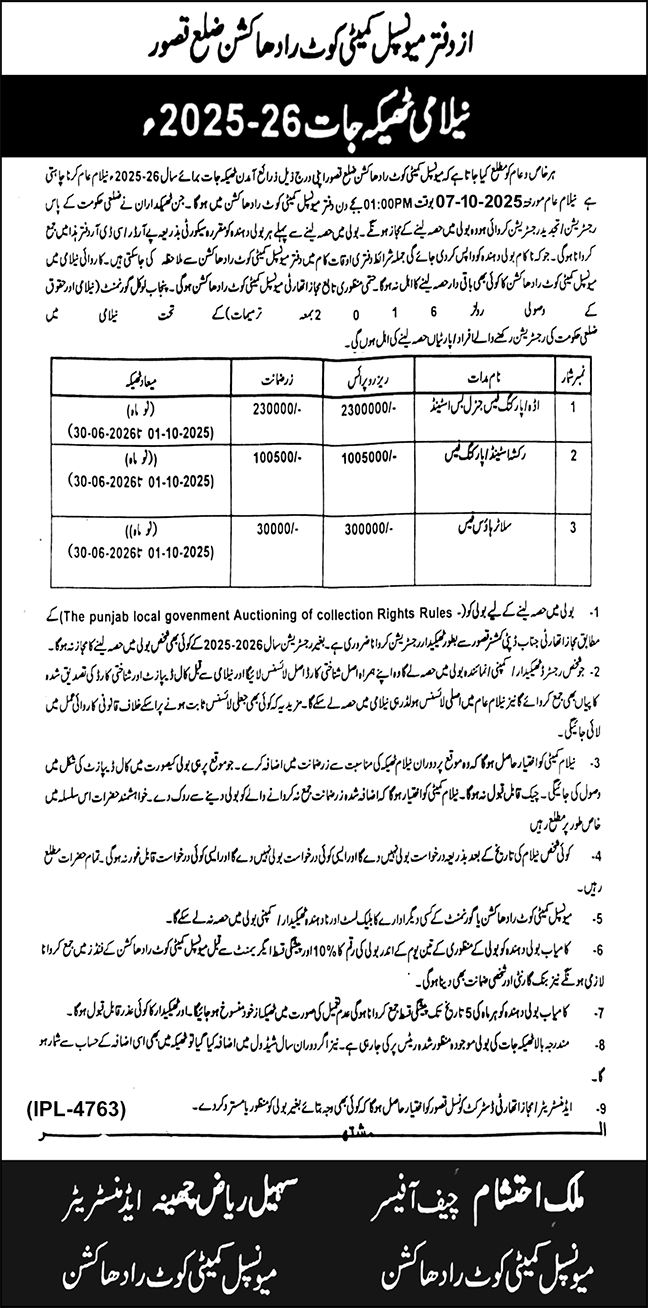 از دفتر میونسپل کمیٹی کوٹ رادھا کشن ضلع قصور
نیلامی ٹھیکہ جات 26-2025ء
ہر خاص و عام کو مطلع کیا جاتا ہے کہ میونسپل کمیٹی کوٹ رادھا کشن ضلع قصور اپنی درج ذیل ذرائع آمدن ٹھیکہ جات برائے سال 26-2025ء نیلام عام کرنا چاہتی
ہے نیلام عام مورخہ 07-10-2025 بوقت 01:00PM بجے دن دفتر میونسپل کمیٹی کوٹ رادھا کشن میں ہوگا۔ جن ٹھیکیداران نے ضلعی حکومت کے پاس
رجسٹریشن / تجدید رجسٹریشن کروائی ہو وہ بولی میں حصہ لینے کے مجاز ہونگے۔ بولی میں حصہ لینے سے پہلے ہر بولی دہندہ کو مقررہ سیکورٹی بذریعہ پے آرڈر / سی ڈی آر دفتر ہذا میں جمع
کروانا ہوگی۔ جو کہ ناکام بولی دہندہ کو واپس کر دی جائے گی جملہ شرائط دفتری اوقات کام میں دفتر میونسپل کمیٹی کوٹ رادھا کشن سے ملاحظہ کی جاسکتی ہیں۔ کاروائی نیلامی میں
میونسپل کمیٹی کوٹ رادھا کشن کا کوئی بھی باقی دار حصہ لینے کا اہل نہ ہوگا۔ حتمی منظوری تابع مجاز اتھارٹی میونسپل کمیٹی کوٹ رادھا کشن ہوگی۔ پنجاب لوکل گورنمنٹ (نیلامی اور حقوق
کے وصولی رولز 2016 بمعہ ترمیمات) کے تحت نیلامی میں
ضلعی حکومت کی رجسٹریشن رکھنے والے افراد / پارٹیاں حصہ لینے کی اہل ہوں گی۔
نمبر شمار نام مدات ریزرو پرائس زر ضمانت میعاد ٹھیکہ
1 اڈہ / پارکنگ فیس جنرل بس اسٹینڈ 2300000/- 230000/- (نو ماہ)
(01-10-2025 تا 30-06-2026)
2 رکشہ اسٹینڈ / پارکنگ فیس 1005000/- 100500/- ((نو ماہ)
(01-10-2025 تا 30-06-2026)
3 سلاٹر ہاؤس فیس 300000/- 30000/- (نو ماہ))
(01-10-2025 تا 30-06-2026)
1- بولی میں حصہ لینے کے لیے بولی کو (The punjab local govenment Auctioning of collection Rights Rules -) کے
مطابق مجاز اتھارٹی جناب ڈپٹی کمشنر قصور سے بطور ٹھیکیدار رجسٹریشن کروانا ضروری ہے۔ بغیر رجسٹریشن سال 2026-2025 کے کوئی بھی شخص بولی میں حصہ لینے کا مجاز نہ ہوگا۔
2- جو شخص رجسٹرڈ ٹھیکیدار / کمپنی / نمائندہ بولی میں حصہ لے گا وہ اپنے ہمراہ اصل شناختی کارڈ اصل لائسنس لائیگا اور نیلامی سے قبل کال ڈیپازٹ اور شناختی کارڈ کی تصدیق شدہ
کاپیاں بھی جمع کروائے گا نیز نیلام عام میں اصلی لائسنس ہولڈر ہی نیلامی میں حصہ لے سکے گا۔ مزید یہ کہ کوئی بھی جعلی لائسنس ثابت ہونے پر اسکے خلاف قانونی کاروائی عمل میں
لائی جائیگی۔
3- نیلام کمیٹی کو اختیار حاصل ہوگا کہ وہ موقع پر دوران نیلام ٹھیکہ کی مناسبت سے زر ضمانت میں اضافہ کرے۔ جو موقع پر ہی بولی کیصورت میں کال ڈیپازٹ کی شکل میں
وصول کی جائیگی۔ چیک قابل قبول نہ ہوگا۔ نیلام کمیٹی کو اختیار ہوگا کہ اضافہ شدہ زر ضمانت جمع نہ کروانے والے کو بولی دینے سے روک دے۔ خواہشمند حضرات اس سلسلہ میں
خاص طور پر مطلع رہیں
4- کوئی شخص نیلام کی تاریخ کے بعد بذریعہ درخواست بولی نہیں دے گا اور ایسی کوئی درخواست بولی نہیں دے گا اور ایسی کوئی درخواست قابل غور نہ ہوگی۔ تمام حضرات مطلع
رہیں۔
5- میونسپل کمیٹی کوٹ رادھا کشن یا گورنمنٹ کے کسی دیگر ادارے کا بلیک لسٹ اور نادہندہ ٹھیکیدار / کمپنی بولی میں حصہ نہ لے سکے گا۔
6- کامیاب بولی دہندہ کو بولی کے منظوری کے تین یوم کے اندر بولی کی رقم کا %10 اور پیشگی قسط ایگریمنٹ سے قبل میونسپل کمیٹی کوٹ رادھا کشن کے فنڈز میں جمع کروانا
لازمی ہونگے نیز بنک گارنٹی اور شخصی ضمانت بھی دینا ہوگی۔
7- کامیاب بولی دہندہ کو ہر ماہ کی 5 تاریخ تک پیشگی قسط جمع کروانا ہوگی عدم تعمیل کی صورت میں ٹھیکہ از خود منسوخ ہو جائیگا۔ اور ٹھیکیدار کا کوئی عذر قابل قبول ہوگا۔
8- مندرجہ بالا ٹھیکہ جات کی بولی موجودہ منظور شدہ ریٹس پر کی جارہی ہے۔ نیز اگر دوران سال شیڈول میں اضافہ کیا گیا تو ٹھیکہ میں بھی اسی اضافہ کے حساب سے شمار ہو
گا۔
9- ایڈمنسٹریٹر / مجاز اتھارٹی ڈسٹرکٹ کونسل قصور کو اختیار حاصل ہوگا کہ کوئی بھی وجہ بتائے بغیر بولی کو منظور یا مسترد کر دے۔ (IPL-4763)
المشتہر
ملک احتشام چیف آفیسر
میونسپل کمیٹی کوٹ رادھا کشن
سہیل ریاض چھینہ ایڈمنسٹریٹر
میونسپل کمیٹی کوٹ رادھا کشن